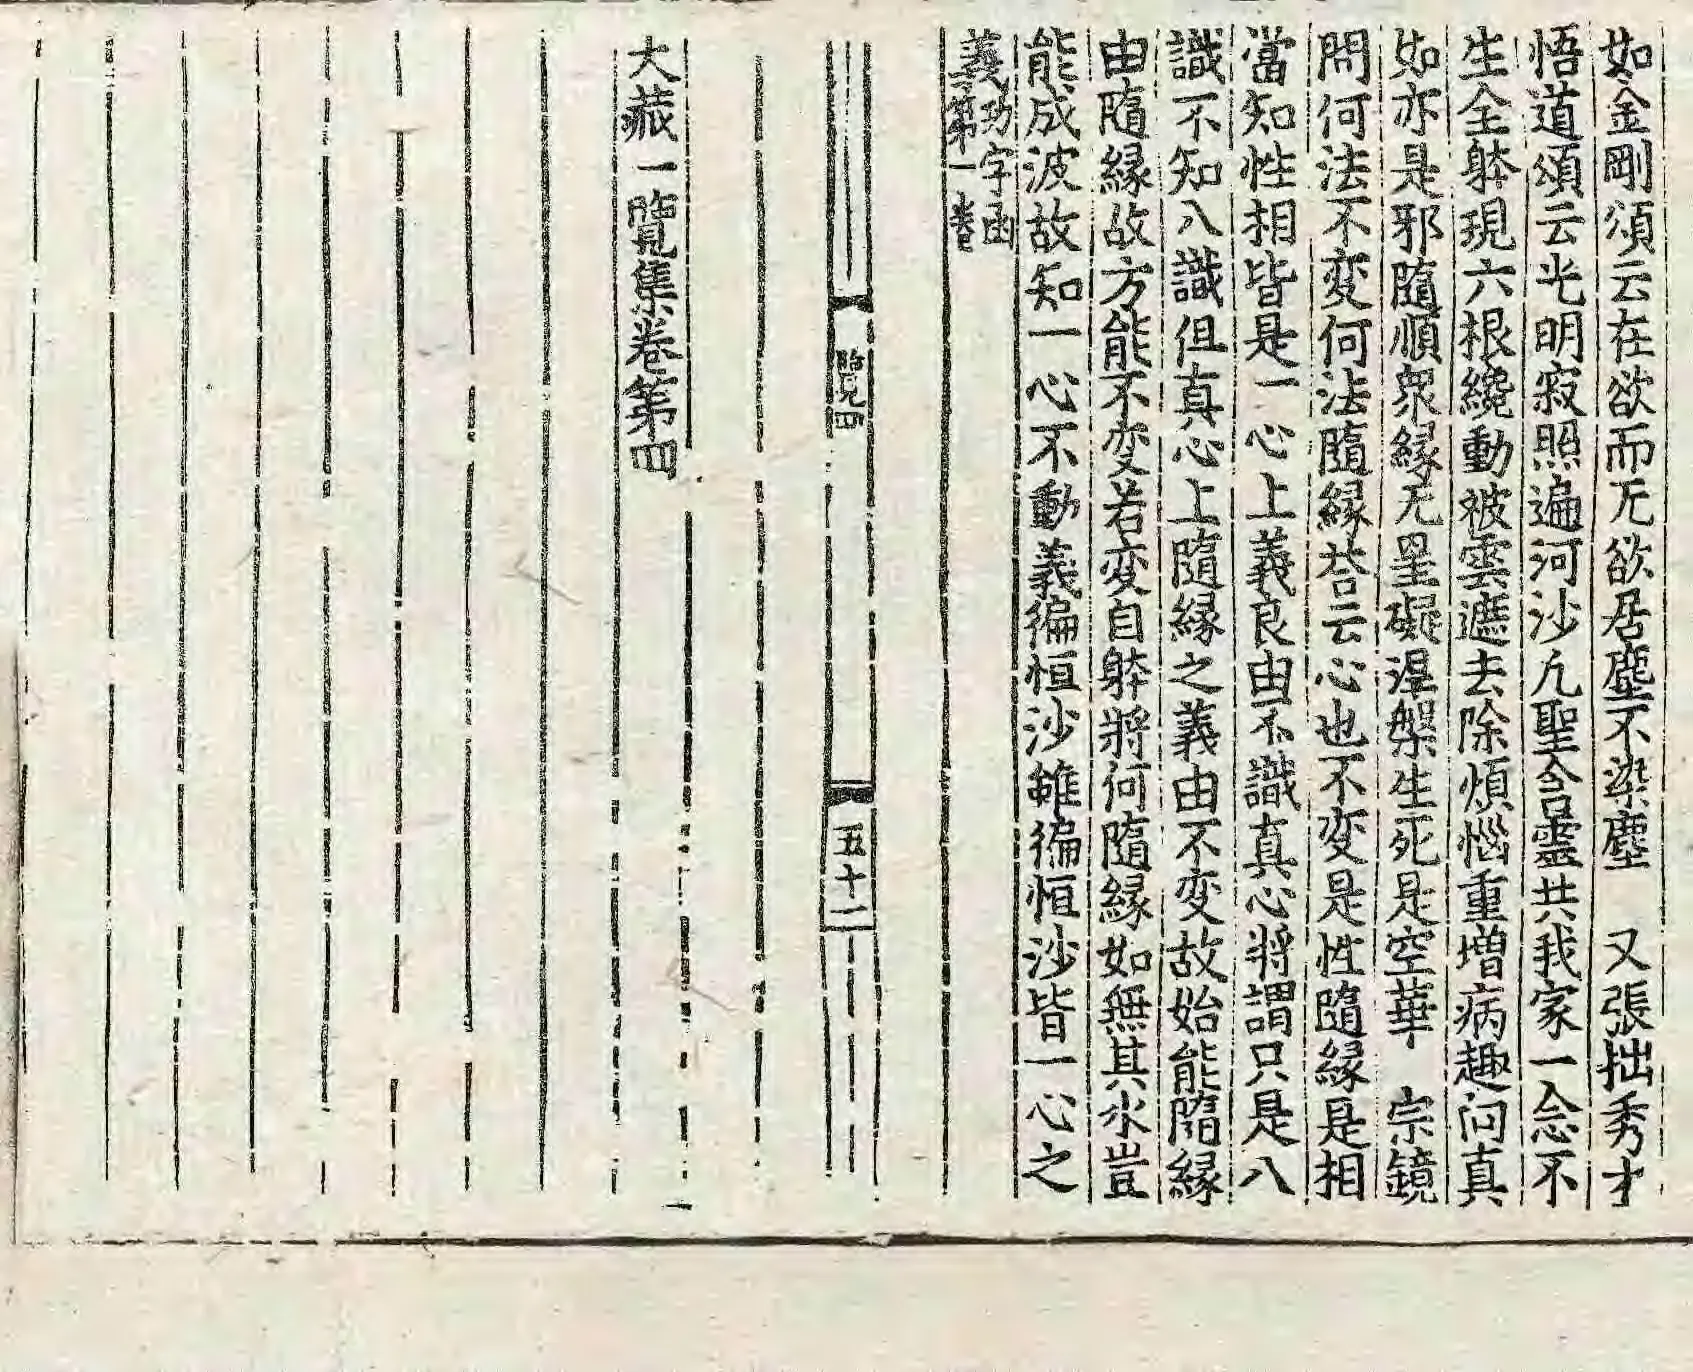 如金剛頌云在欲而无欲居塵不染塵　又張拙秀才
悟道頌云光明寂照遍河沙凢聖含靈共我家一念不
生全躰現六根纔動被雲遮去除煩惱重増病趣问真
如亦是邪隨順衆縁无罣礙涅槃生死是空華　宗鏡
問何法不变何法隨縁荅云心也不变是性隨縁是相
當知性相皆是一心上義良由不識真心將謂只是八
識不知八識但真心上隨縁之義由不变故始能隨縁
由隨縁故方能不变若变自躰將何隨縁如無其水豈
能成波故知一心不動義徧恒沙雖徧恒沙皆一心之
義功字函
第一卷
覽四
五十二
大藏一覽集卷第四